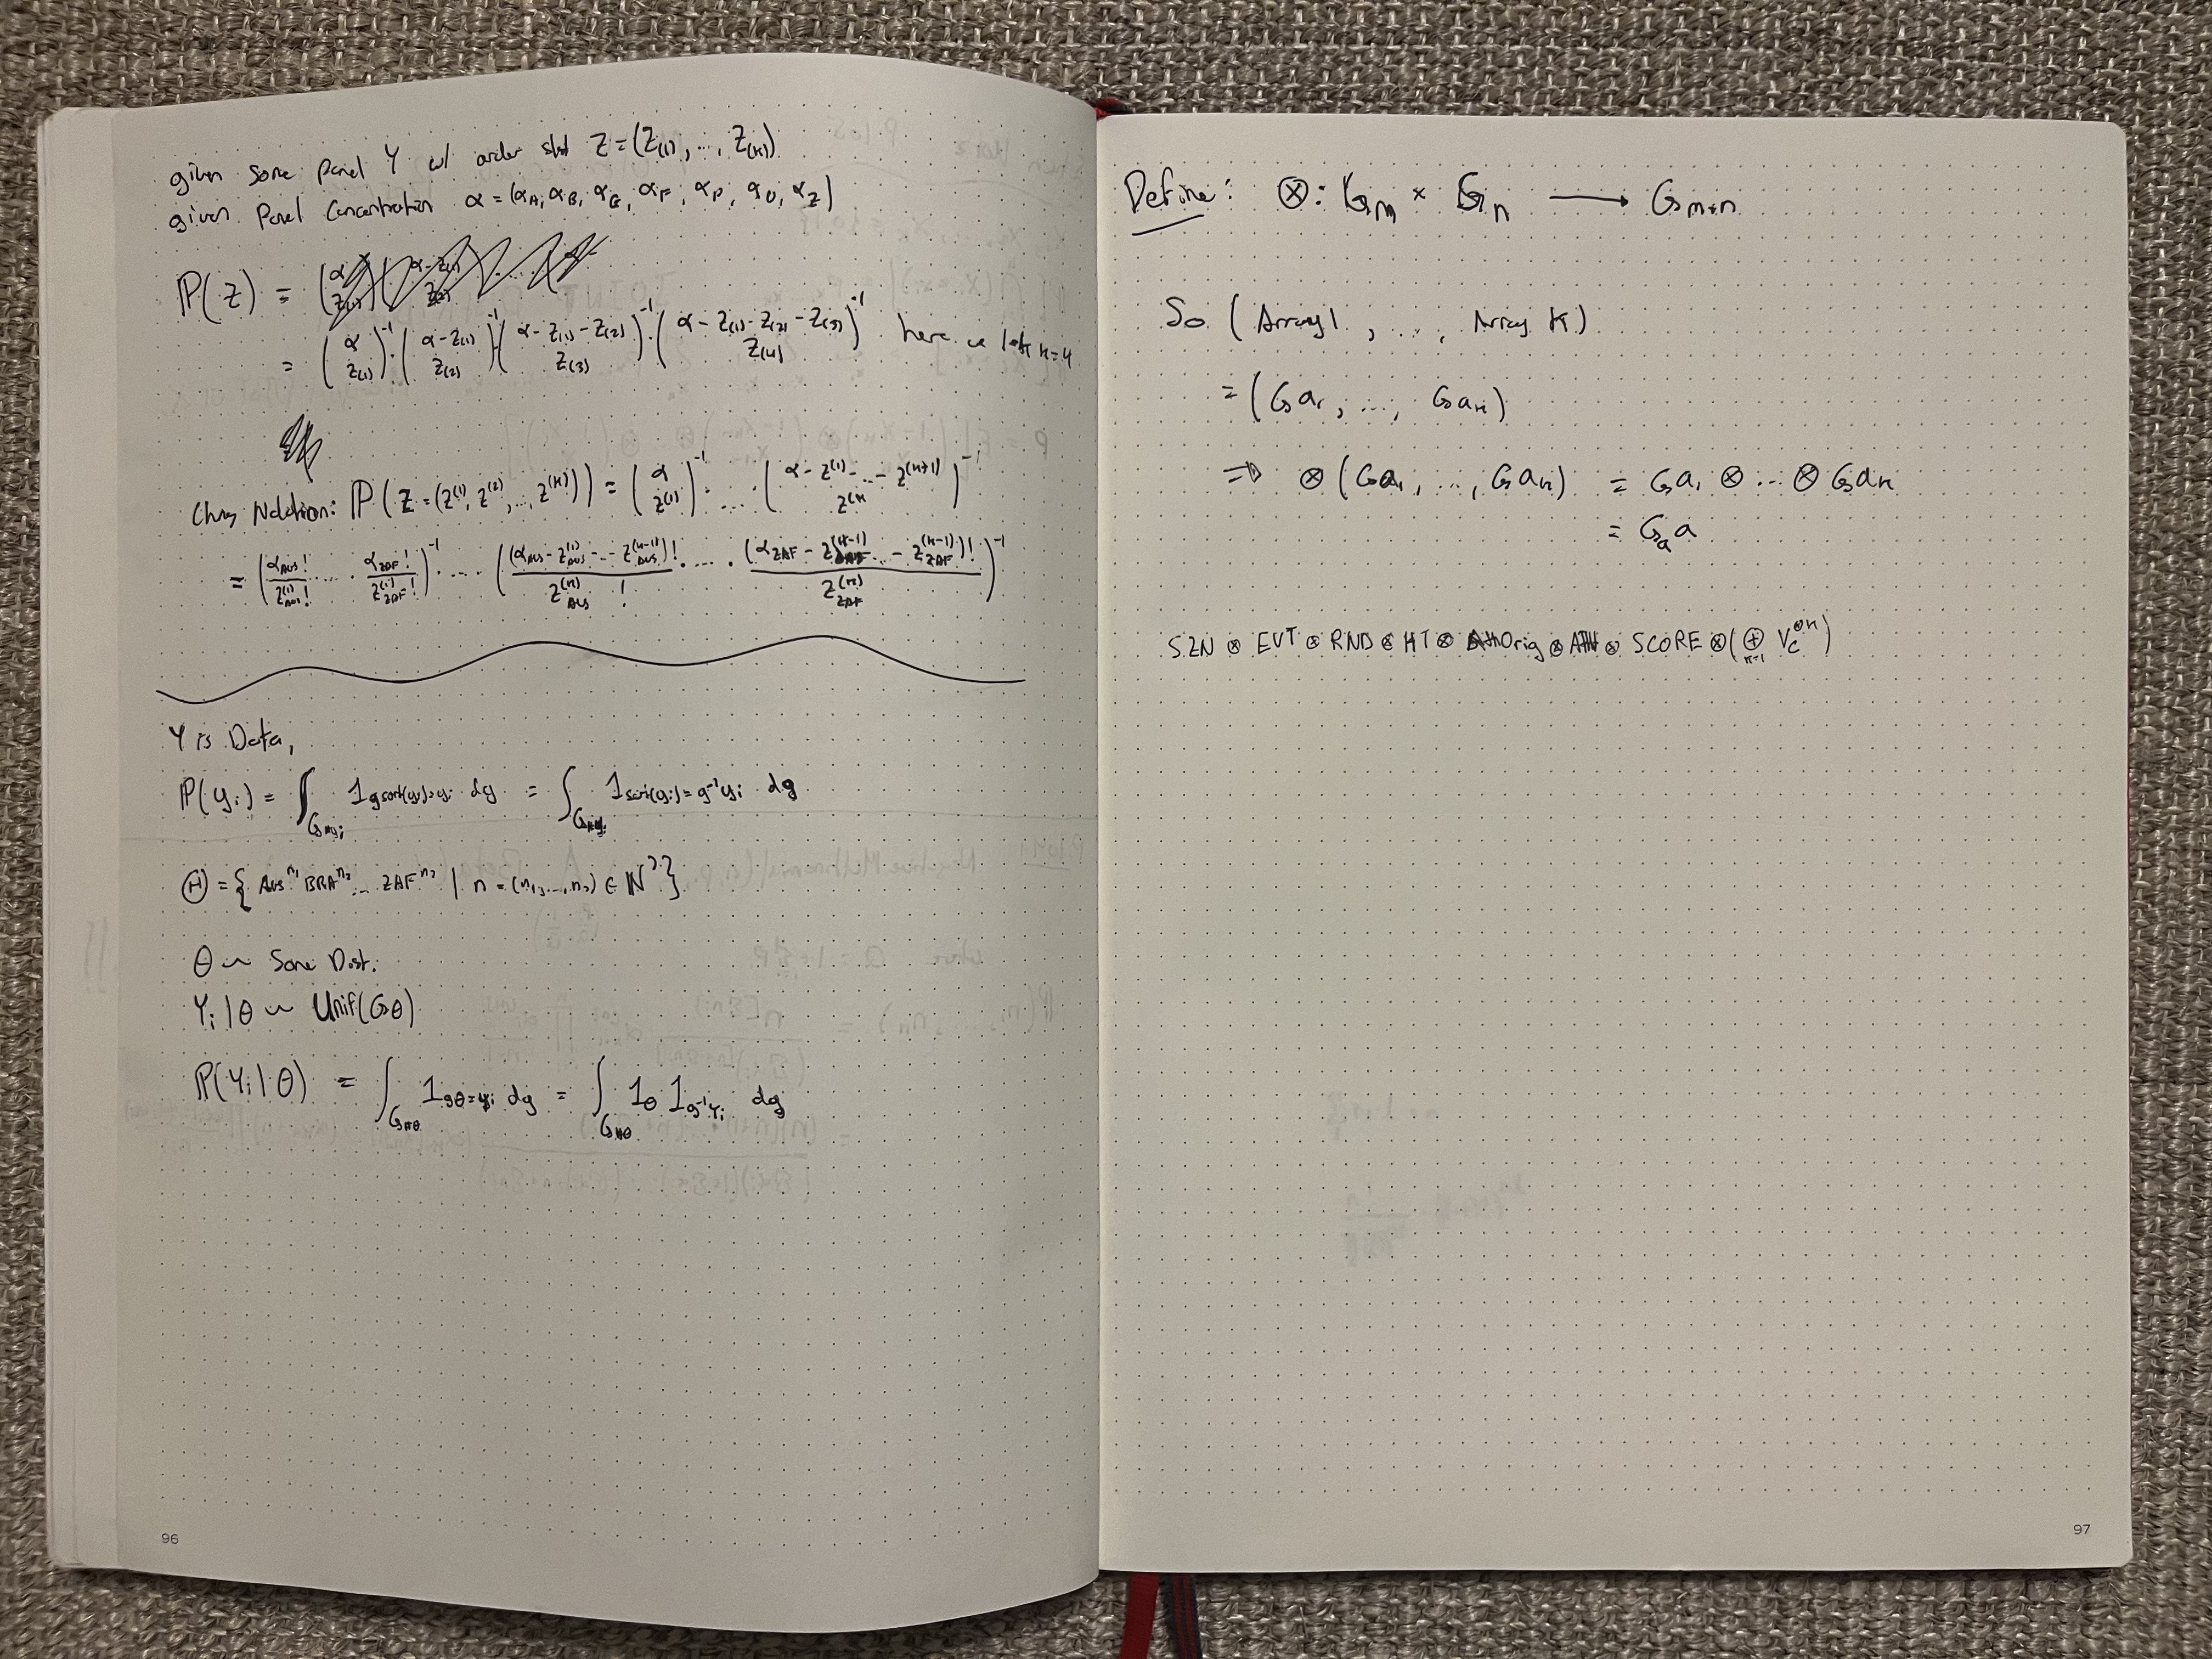 given some panel Y w/ order stat Z = (Z(1), ..., Z(k))
given Panel Concentration α = (αA, αB, αG, αF, αP, αU, αZ)
P(Z) =
= (α Z(1))⁻¹ · (α - Z(1) Z(2))⁻¹ (α - Z(1) - Z(2) Z(3))⁻¹ · (α - Z(1) - Z(2) - Z(3) Z(4))⁻¹ here we let k=4
Chng Notation: P(Z = (Z⁽¹⁾, Z⁽²⁾, ..., Z⁽ᵏ⁾)) = (α Z⁽¹⁾)⁻¹ · ... · (α - Z⁽¹⁾ - ... - Z⁽ᵏ⁺¹⁾ Z⁽ᵏ)⁻¹
= (αAUS! / Z⁽¹⁾AUS! · ... · αZAF! / Z⁽¹⁾ZAF!)⁻¹ · ... · ((αAUS - Z⁽¹⁾AUS - ... - Z⁽ᵏ⁻¹⁾AUS)! / Z⁽ᵏ⁾AUS! · ... · (αZAF - Z⁽ᵏ⁻¹⁾ ... - Z⁽ᵏ⁻¹⁾ZAF)! / Z⁽ᵏ⁾ZAF)⁻¹
Y is Data,
P(yi) = ∫ 1 g sort(yi) = yi dg = ∫ 1 sort(yi) = g⁻¹yi dg
Θ = { AUSⁿ¹ BRAⁿ² ... ZAFⁿ⁷ | n = (n1, ..., n7) ∈ N⁷}
θ ~ Some Dist.
Yi | θ ~ Unif(Gθ)
P(Yi | θ) = ∫ 1 gθ = yi dg = ∫ 1θ 1g⁻¹yi dg
96
Define: ⊗: Gm × Gn → Gm+n
So (Array 1, ..., Array k)
= (Ga1, ..., Gak)
⇒ ⊗(Ga1, ..., Gak) = Ga1 ⊗ ... ⊗ Gak
= Ga a
SZN ⊗ EVT ⊗ RND ⊗ HT ⊗ Orig ⊗ ATH ⊗ SCORE ⊗ (⊕ n=1 Vc⊗n)
97